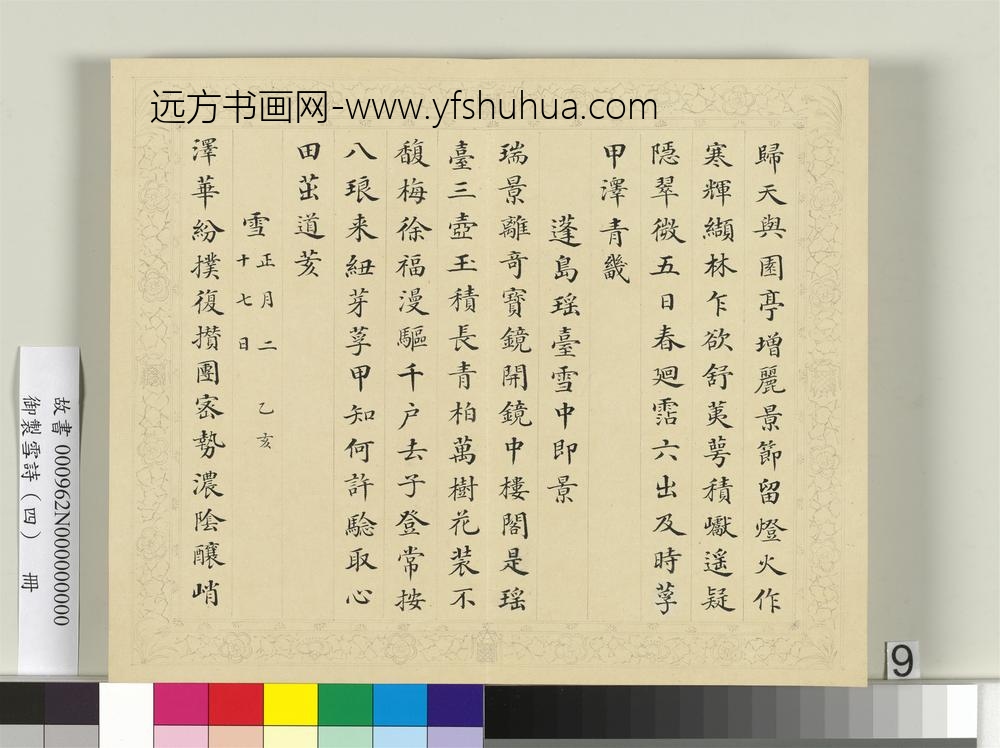 远方书画网-www.yfshuhua.com
歸天與園亭增麗景節留燈火作
寒輝纈林乍欲舒荑萼積巘遥疑
隱翠微五日春廻霑六出及時莩
甲澤青畿
蓬島瑶臺雪中即景
瑞景離奇寶鏡開鏡中樓閣是瑶
臺三壺玉積長青柏萬樹花装不
馥梅徐福漫驅千户去子登常按
八琅来紐芽莩甲知何許驗取心
田茁道荄
雪正月二十七日 乙亥
澤華紛撲復攢團宻勢濃陰釀峭
故書 000962N000000000
御製雪詩（四） 冊
9